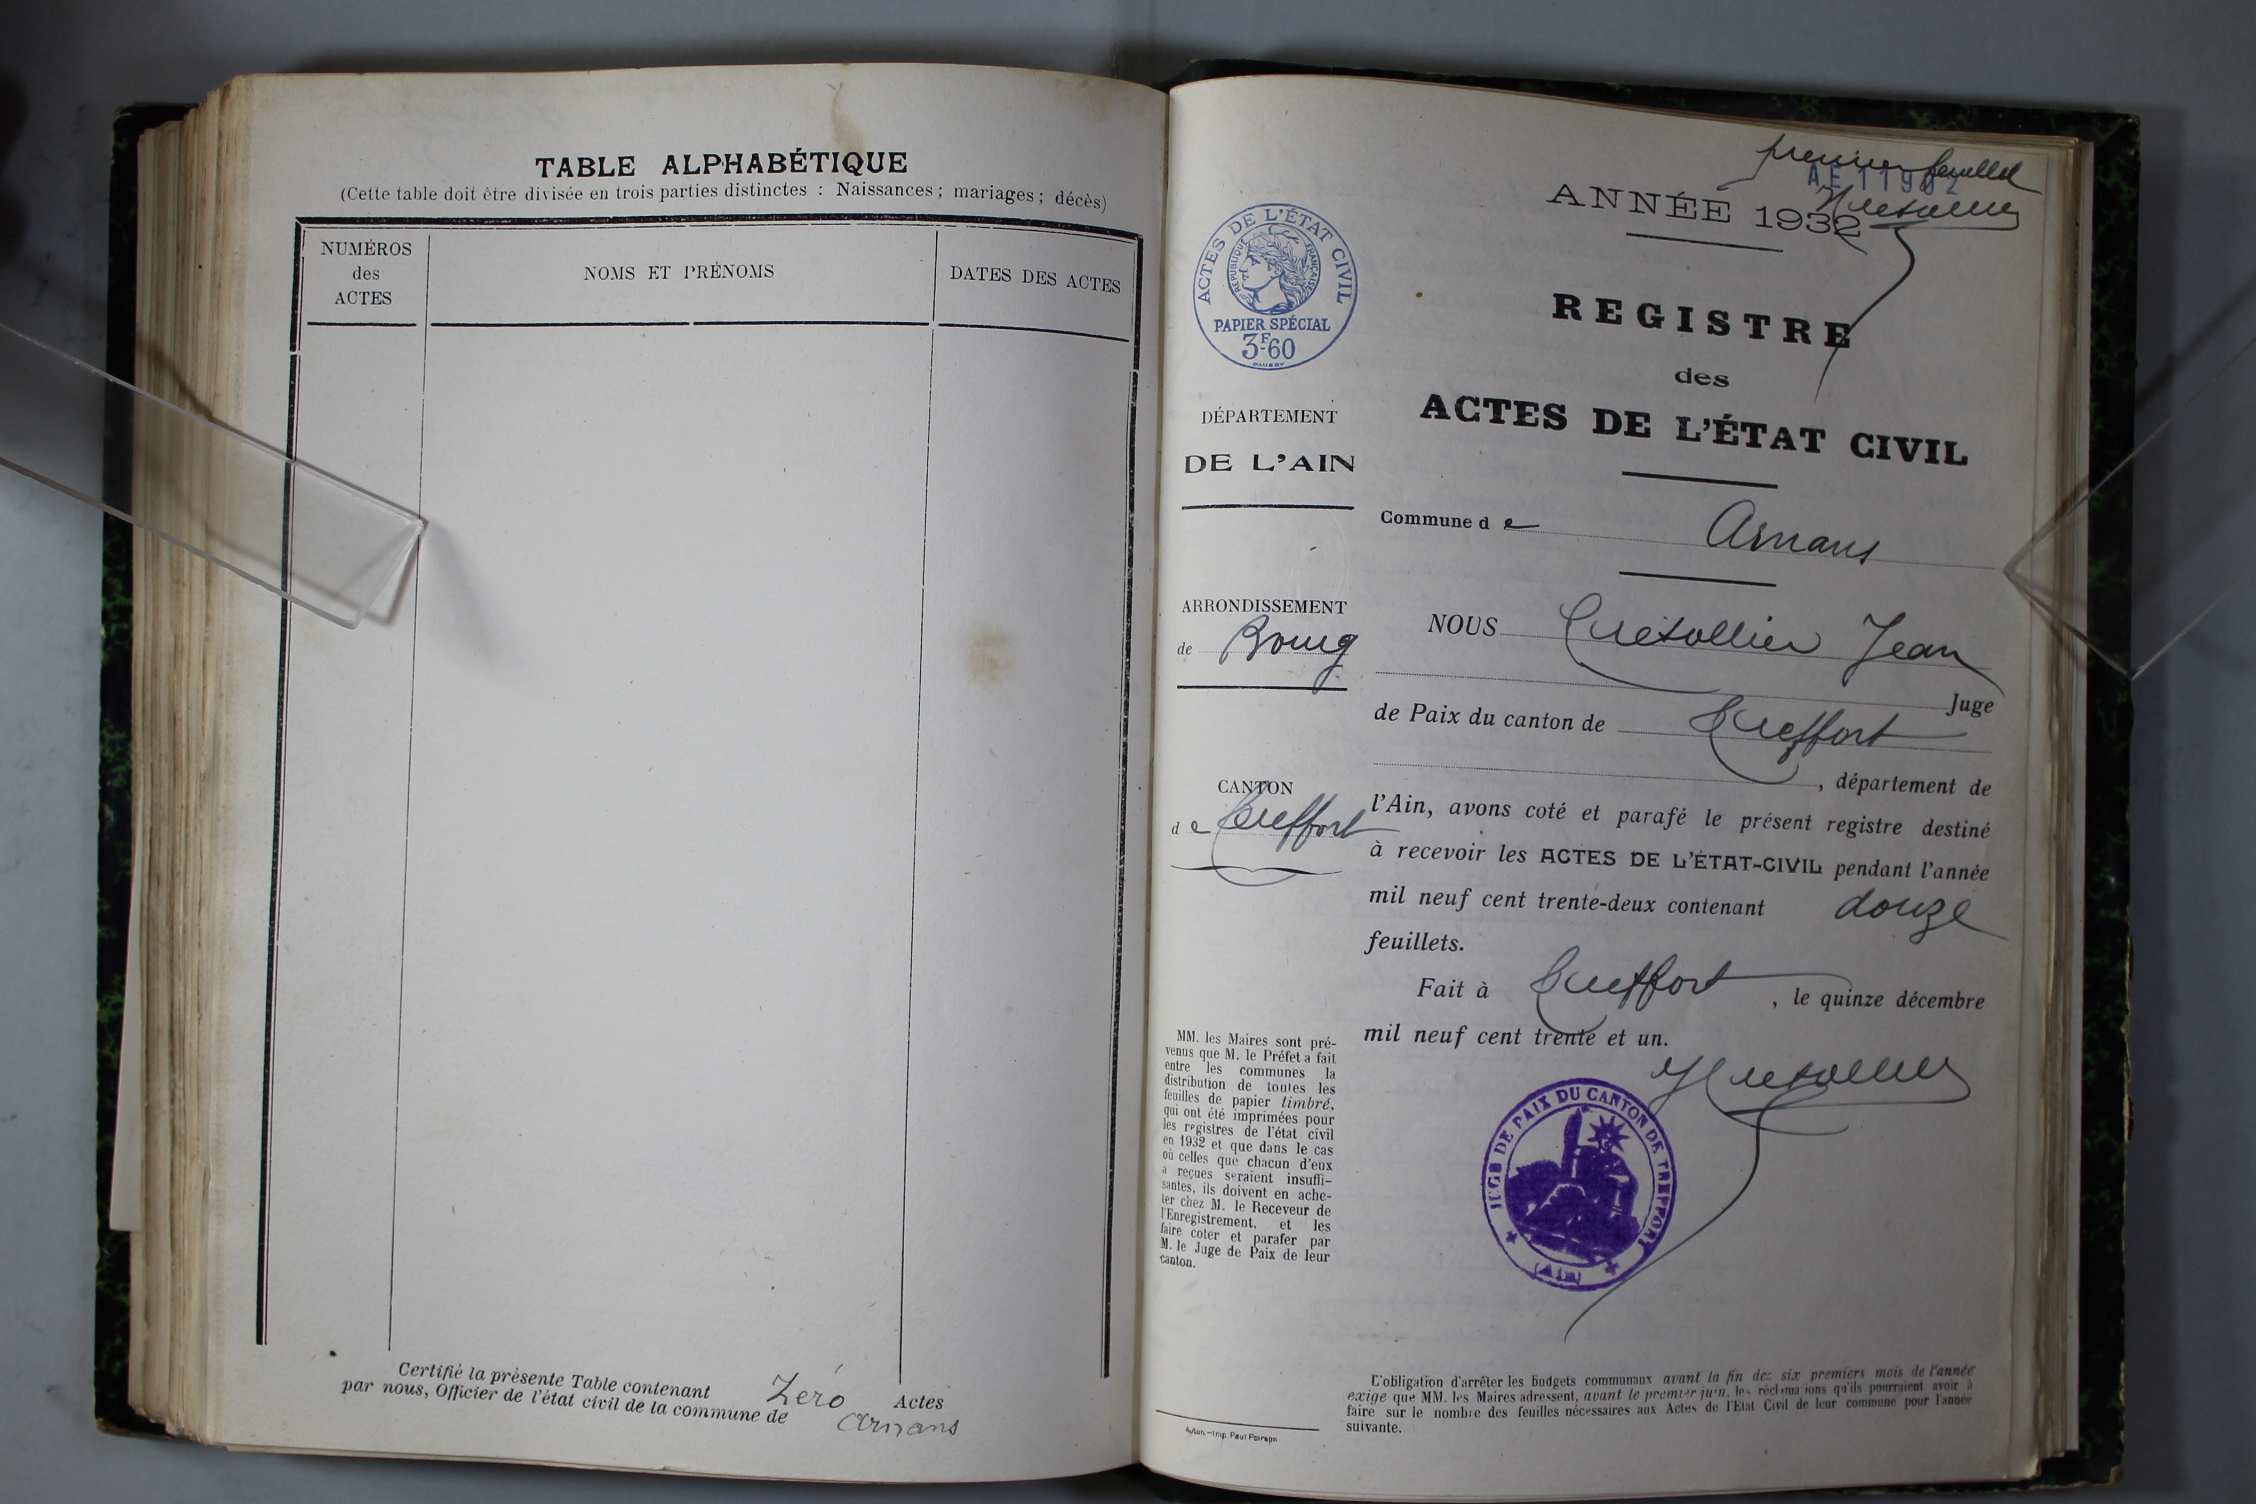 TABLE ALPHABÉTIQUE
(Cette table doit être divisée en trois parties distinctes : Naissances ; mariages ; décès)
NUMÉROS
des
ACTES
NOMS ET PRÉNOMS
DATES DES ACTES
Certifié la présente Table contenant Zéro Actes
par nous, Officier de l'état civil de la commune de Arnans
premier feuillet
AE 11902
ANNÉE 1932
ACTES DE L'ÉTAT CIVIL
RÉPUBLIQUE FRANÇAISE
PAPIER SPÉCIAL
3F-60
REGISTRE
des
ACTES DE L'ÉTAT CIVIL
DÉPARTEMENT
DE L'AIN
Commune de Arnans
ARRONDISSEMENT
de Bourg
CANTON
de Treffort
NOUS Jean
Juge
de Paix du canton de Treffort
, département de
l'Ain, avons coté et parafé le présent registre destiné
à recevoir les ACTES DE L'ÉTAT-CIVIL pendant l'année
mil neuf cent trente-deux contenant douze
feuillets.
Fait à Treffort, le quinze décembre
mil neuf cent trente et un.
MM. les Maires sont pré-
venus que M. le Préfet a fait
entre les communes la
distribution de toutes les
feuilles de papier timbré,
qui ont été imprimées pour
les registres de l'état civil
en 1932 et que dans le cas
où celles que chacun d'eux
a reçues seraient insuffi-
santes, ils doivent en ache-
ter chez M. le Receveur de
l'Enregistrement, et les
faire coter et parafer par
M. le Juge de Paix de leur
canton.
JUGE DE PAIX DU CANTON DE TREFFORT
(Ain)
L'obligation d'arrêter les budgets communaux avant la fin des six premiers mois de l'année
exige que MM. les Maires adressent, avant le premier juin, les réclamations qu'ils pourraient avoir à
faire sur le nombre des feuilles nécessaires aux Actes de l'Etat Civil de leur commune pour l'année
suivante.